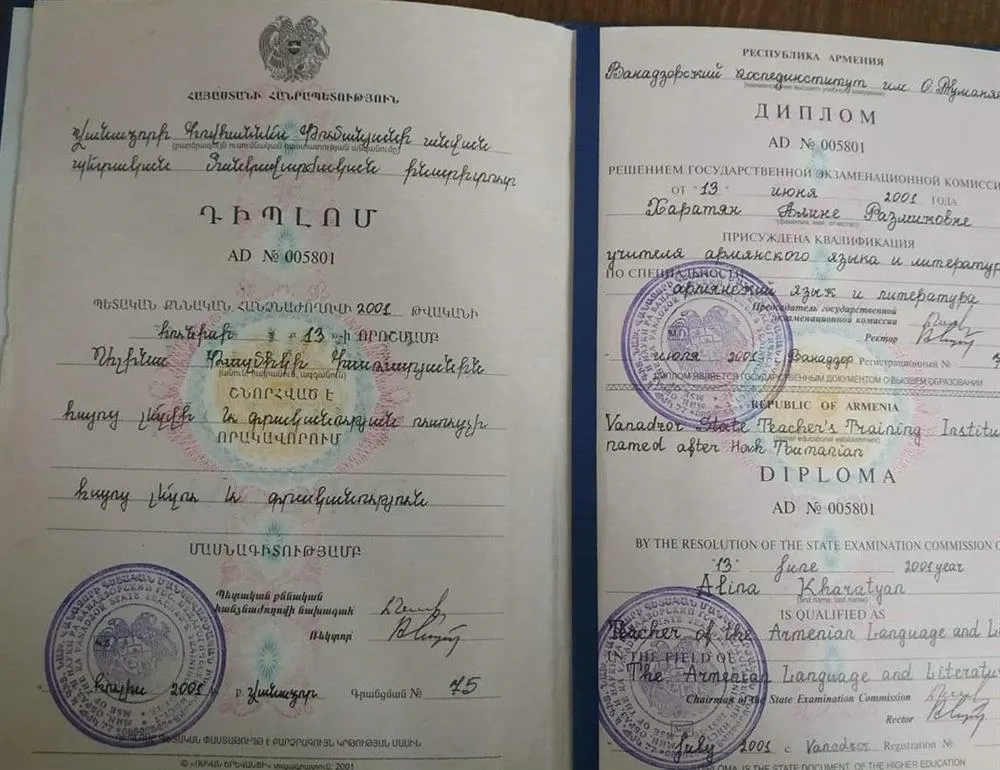 ՀԱՅԱՍՏԱՆԻ ՀԱՆՐԱՊԵՏՈՒԹՅՈՒՆ
Վանաձորի Հովհաննես Թումանյանի անվան
(բարձրագույն ուսումնական հաստատության անվանումը)
պետական մանկավարժական ինստիտուտ
ԴԻՊԼՈՄ
AD № 005801
ՊԵՏԱԿԱՆ ՔՆՆԱԿԱՆ ՀԱՆՁՆԱԺՈՂՈՎԻ 2001 ԹՎԱԿԱՆԻ
հունիսի 13 -Ի ՈՐՈՇՄԱՄԲ
Ալինա Ռազմիկի Խառատյանին
(անուն, հայրանուն, ազգանուն)
ՇՆՈՐՀՎԱԾ Է
հայոց լեզվի և գրականության ուսուցչի
ՈՐԱԿԱՎՈՐՈՒՄ
հայոց լեզու և գրականություն
ՄԱՍՆԱԳԻՏՈՒԹՅԱՄԲ
Պետական քննական
հանձնաժողովի նախագահ
Ռեկտոր
հուլիս 2001 ք. Վանաձոր Գրանցման № 75
ԴԻՊԼՈՄԸ ՊԵՏԱԿԱՆ ՓԱՍՏԱԹՈՒՂԹ Է ԲԱՐՁՐԱԳՈՒՅՆ ԿՐԹՈՒԹՅԱՆ ՄԱՍԻՆ
РЕСПУБЛИКА АРМЕНИЯ
Ванадзорский госпединститут им. О. Туманя
ДИПЛОМ
AD № 005801
РЕШЕНИЕМ ГОСУДАРСТВЕННОЙ ЭКЗАМЕНАЦИОННОЙ КОМИССИ
ОТ "13" июня 2001 ГОДА
Харатян Алине Размиковне
(фамилия, имя, отчество)
ПРИСУЖДЕНА КВАЛИФИКАЦИЯ
учителя армянского языка и литератур
ПО СПЕЦИАЛЬНОСТИ
армянский язык и литература
Председатель государственной
экзаменационной комиссии
Ректор
июля 2001 г. Ванадзор Регистрационный № 7
ДИПЛОМ ЯВЛЯЕТСЯ ГОСУДАРСТВЕННЫМ ДОКУМЕНТОМ О ВЫСШЕМ ОБРАЗОВАНИИ
REPUBLIC OF ARMENIA
Vanadzor State Teacher's Training Institu
(higher educational establishment)
named after Hovh Toumanian
DIPLOMA
AD № 005801
BY THE RESOLUTION OF THE STATE EXAMINATION COMMISSION O
"13" June 2001 year
Alina Kharatyan
(first name, last name)
IS QUALIFIED AS
Teacher of the Armenian Language and Li
IN THE FIELD OF
The Armenian Language and Literatu
Chairman of the State Examination Commission
Rector
July 2001 c. Vanadzor Registration №
DIPLOMA IS THE STATE DOCUMENT OF THE HIGHER EDUCATION